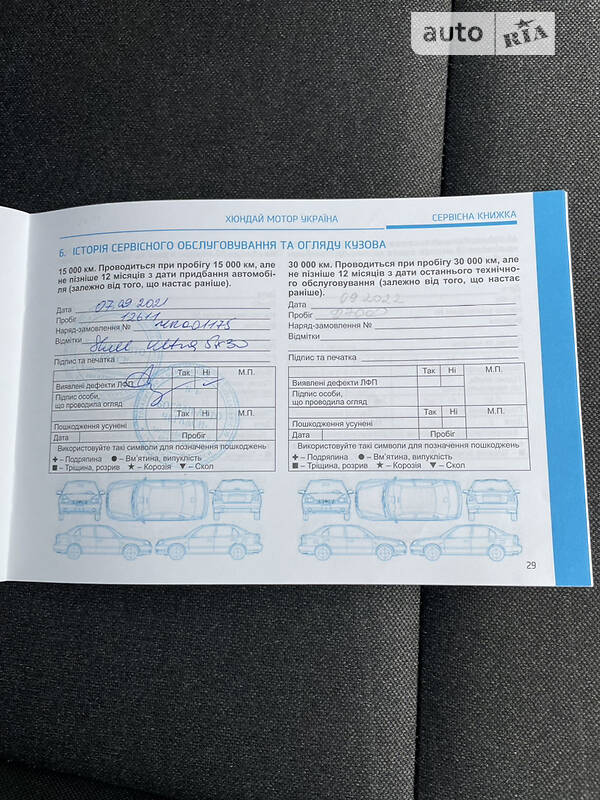 auto RIA
ХЮНДАЙ МОТОР УКРАЇНА
СЕРВІСНА КНИЖКА
6. ІСТОРІЯ СЕРВІСНОГО ОБСЛУГОВУВАННЯ ТА ОГЛЯДУ КУЗОВА
15 000 км. Проводиться при пробігу 15 000 км, але
не пізніше 12 місяців з дати придбання автомобі-
ля (залежно від того, що настає раніше).
Дата 07.09.2021
Пробіг 12611
Наряд-замовлення №
Відмітки Shell Ultra 5x30
Підпис та печатка
Так Ні М.П.
Виявлені дефекти ЛФП
Підпис особи,
що проводила огляд
Так Ні М.П.
Пошкодження усунені
Дата Пробіг
Використовуйте такі символи для позначення пошкоджень
+ – Подряпина ● – Вм'ятина, випуклість
■ – Тріщина, розрив ★ – Корозія ▼ – Скол
30 000 км. Проводиться при пробігу 30 000 км, але
не пізніше 12 місяців з дати останнього технічно-
го обслуговування (залежно від того, що настає
раніше).
Дата 09 2022
Пробіг
Наряд-замовлення №
Відмітки
Підпис та печатка
Так Ні М.П.
Виявлені дефекти ЛФП
Підпис особи,
що проводила огляд
Так Ні М.П.
Пошкодження усунені
Дата Пробіг
Використовуйте такі символи для позначення пошкоджень
+ – Подряпина ● – Вм'ятина, випуклість
■ – Тріщина, розрив ★ – Корозія ▼ – Скол
29